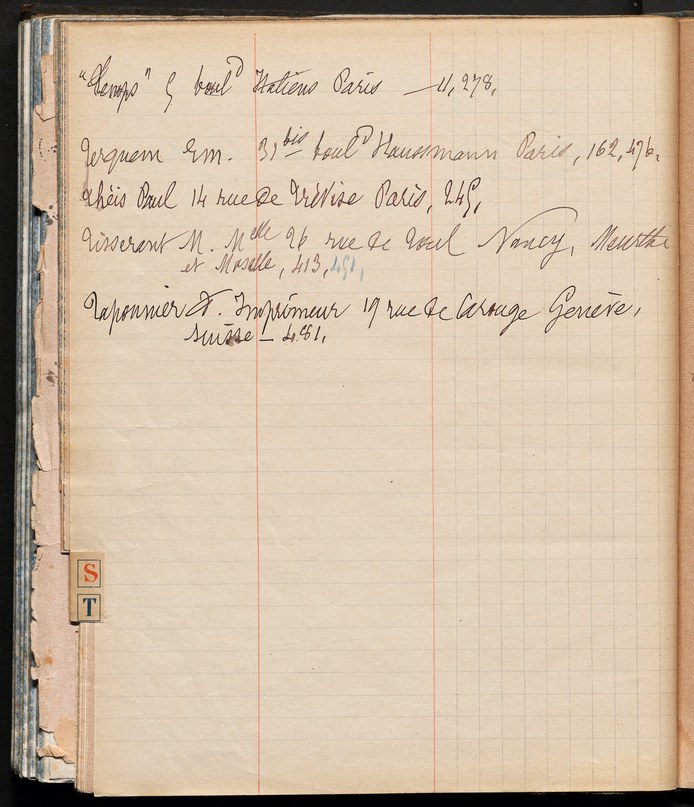 "Temps" 5 boul^d Italiens Paris — 11, 278,
Terquem Em. 31^bis boul^d Haussmann Paris, 162, 476.
Theis Paul 14 rue de Trévise Paris, 245,
Tisserant M. M^elle 26 rue de Toul Nancy, Meurthe
et Moselle, 413, 451,
Taponnier A. Imprimeur 19 rue de Carouge Genève,
Suisse — 481,
S
T